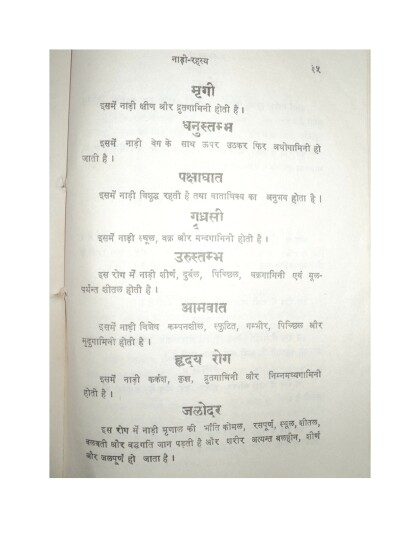 नाड़ी-रहस्य
२५
मृगी
इसमें नाड़ी क्षीण और द्रुतगामिनी होती है ।
धनुस्तम्भ
इसमें नाड़ी वेग के साथ ऊपर उठकर फिर अधोगामिनी हो
जाती है ।
पक्षाघात
इसमें नाड़ी विशुद्ध रहती है तथा वाताधिक्य का अनुभव होता है ।
गृध्रसी
इसमें नाड़ी स्थूल, वक्र और मन्दगामिनी होती है ।
उरुस्तम्भ
इस रोग में नाड़ी शीर्ण, दुर्बल, पिच्छिल, वक्रगामिनी एवं मूल-
पर्यन्त शीतल होती है ।
आमवात
इसमें नाड़ी विशेष कम्पनशील, स्फुटित, गम्भीर, पिच्छिल और
मृदुगामिनी होती है ।
हृदय रोग
इसमें नाड़ी कर्कश, कृश, द्रुतगामिनी और निम्नमध्यगामिनी
होती है ।
जलोदर
इस रोग में नाड़ी मृणाल की भाँति कोमल, रसपूर्ण, स्थूल, शीतल,
बलवती और बद्धगति जान पड़ती है और शरीर अत्यन्त बलहीन, शीर्ण
और जलपूर्ण हो जाता है ।